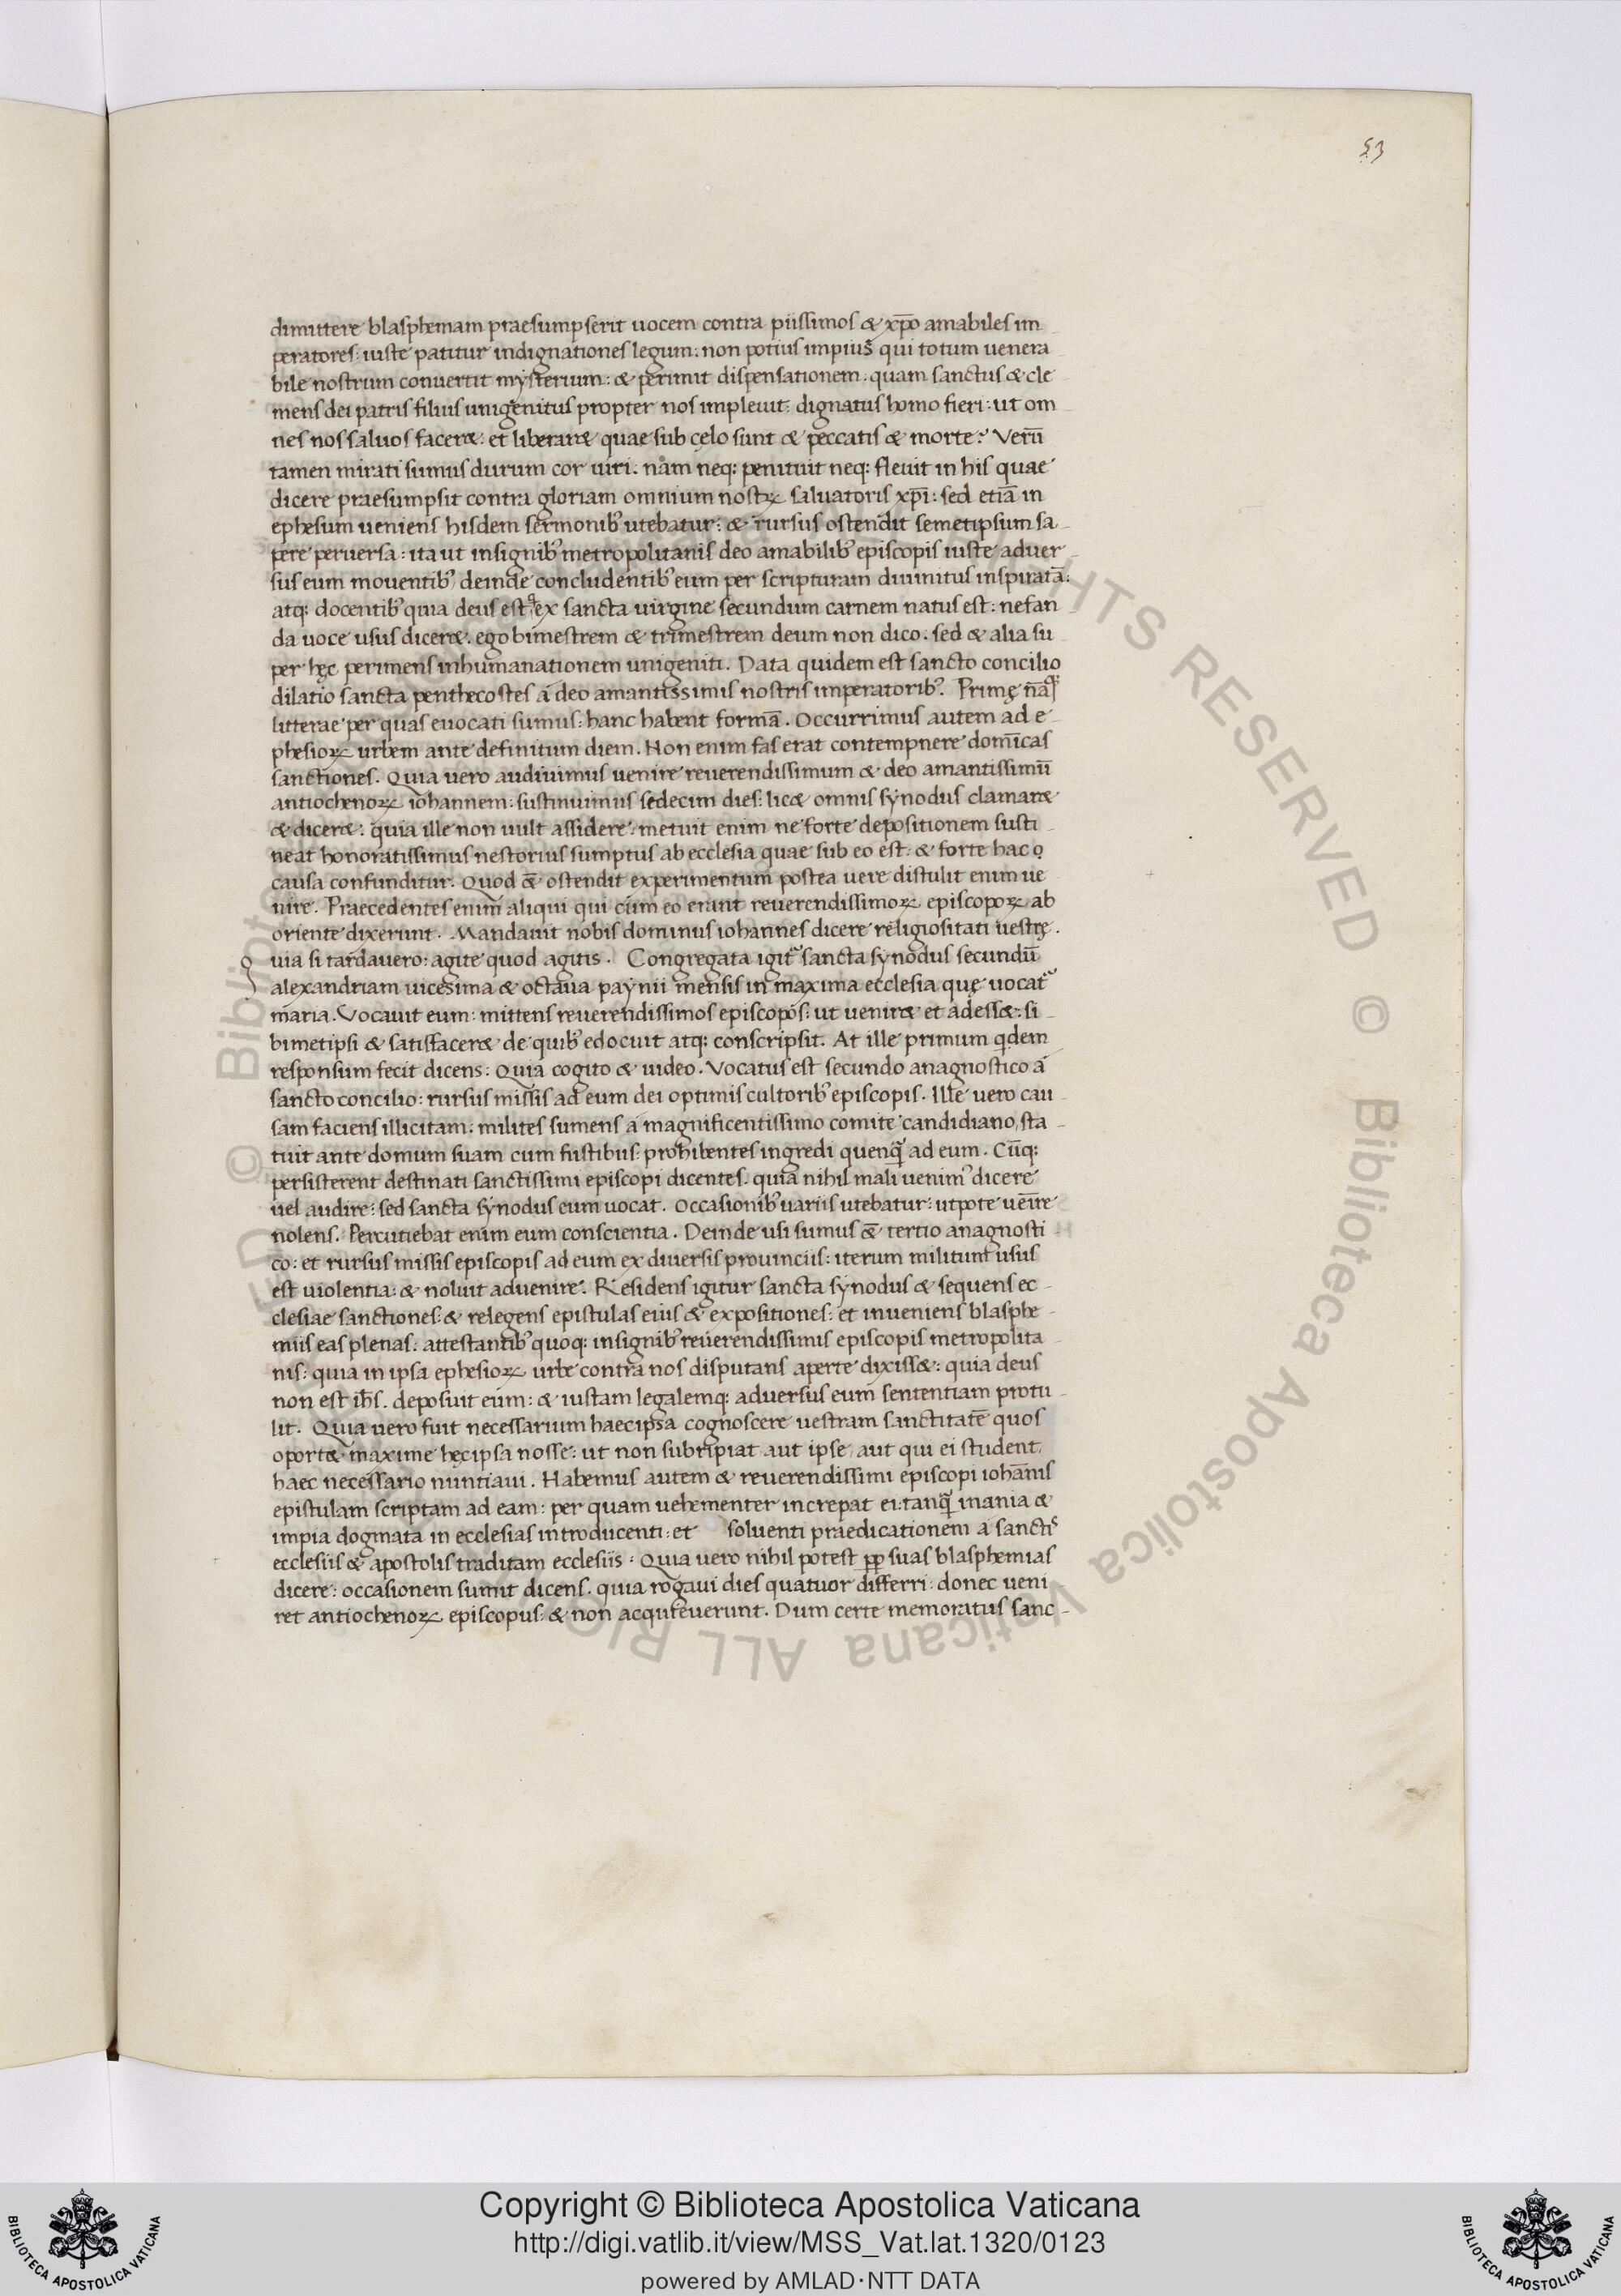 53
dimittere blasphemam praesumpserit uocem contra piissimos & xp̄o amabiles im
peratores: iuste patitur indignationes legum: non potius impius qui totum uenera
bile nostrum conuertit mysterium: & perimit dispensationem: quam sanctus & cle
mens dei patris filius unigenitus propter nos impleuit: dignatus homo fieri: ut om
nes nos saluos facer&: et liberar& quae sub cęlo sunt & peccatis & morte? Verū
tamen mirati sumus durum cor uiri. nam neq: penituit neq: fleuit in his quae
dicere praesumpsit contra gloriam omnium nostrꝝ saluatoris xp̄i: sed etiā in
ephesum ueniens hisdem sermonibꝰ utebatur: & rursus ostendit semetipsum sa
pere peruersa: ita ut insignibꝰ metropolitanis deo amabilibꝰ episcopis iuste aduer
sus eum mouentibꝰ, deinde concludentibꝰ eum per scripturam diuinitus inspiratā:
atq: docentibꝰ quia deus est q ex sancta uirgine secundum carnem natus est: nefan
da uoce usus dicer&. ego bimestrem & trimestrem deum non dico. sed & alia su
per hęc perimens inhumanationem unigeniti. Data quidem est sancto concilio
dilatio sancta penthecostes a deo amantissimis nostris imperatoribꝰ. Primę nāq
litterae per quas euocati sumus: hanc habent formā. Occurrimus autem ad e
phesioꝝ urbem ante definitum diem. Non enim fas erat contempnere domīcas
sanctiones. Quia uero audiuimus uenire reuerendissimum & deo amantissimū
antiochenoꝝ iohannem: sustinuimus sedecim dies: lic& omnis synodus clamar&
& dicer&: quia ille non uult assidere: metuit enim ne forte depositionem susti
neat honoratissimus nestorius sumptus ab ecclesia quae sub eo est: & forte hac
causa confunditur. Quod &̄ ostendit experimentum postea uere distulit enim ue
nire. Praecedentes enim aliqui qui cum eo erant reuerendissimoꝝ episcopoꝝ ab
oriente dixerunt. Mandauit nobis dominus iohannes dicere religiositati uestrę.
Q uia si tardauero: agite quod agitis. Congregata igit᷑ sancta synodus secundū
alexandriam uicesima & octaua paynii mensis in maxima ecclesia quę uocat᷑
maria. Vocauit eum: mittens reuerendissimos episcopos: ut uenir& et adess&: si
bimetipsi & satisfacer& de quibꝰ edocuit atq: conscripsit. At ille primum qdem
responsum fecit dicens: Quia cogito & uideo. Vocatus est secundo anagnostico a
sancto concilio: rursus missis ad eum dei optimis cultoribꝰ episcopis. Ille uero cau
sam faciens illicitam: milites sumens a magnificentissimo comite candidiano, sta
tuit ante domum suam cum fustibus: prohibentes ingredi quenq̄ ad eum. Cūq:
persisterent destinati sanctissimi episcopi dicentes. quia nihil mali uenimꝰ dicere
uel audire: sed sancta synodus eum uocat. Occasionibꝰ uariis utebatur: utpote uenīre
nolens. Percutiebat enim eum conscientia. Deinde usi sumus &̄ tertio anagnosti
co: et rursus missis episcopis ad eum ex diuersis prouinciis: iterum militum usus
est uiolentia: & noluit aduenire. Residens igitur sancta synodus & sequens ec
clesiae sanctiones: & relegens epistulas eius & expositiones: et inueniens blasphe
miis eas plenas: attestantibꝰ quoq: insignibꝰ reuerendissimis episcopis metropolita
nis: quia in ipsa ephesioꝝ urbe contra nos disputans aperte dixiss&: quia deus
non est ih̄s. deposuit eum: & iustam legalemq: aduersus eum sententiam protu
lit. Quia uero fuit necessarium haec ipsa cognoscere uestram sanctitatē quos
oport& maxime hęc ipsa nosse: ut non subripiat aut ipse, aut qui ei student,
haec necessario nuntiaui. Habemus autem & reuerendissimi episcopi iohānis
epistulam scriptam ad eam: per quam uehementer increpat ei: tanq̄ inania &
impia dogmata in ecclesias introducenti: et soluenti praedicationem a sanctis
ecclesiis & apostolis traditam ecclesiis: Quia uero nihil potest ꝓp suas blasphemias
dicere: occasionem sumit dicens. quia rogaui dies quatuor differri: donec ueni
ret antiochenoꝝ episcopus: & non acquieuerunt. Dum certe memoratus sanc
Copyright © Biblioteca Apostolica Vaticana
http://digi.vatlib.it/view/MSS_Vat.lat.1320/0123
powered by AMLAD·NTT DATA
BIBLIOTECA APOSTOLICA VATICANA
BIBLIOTECA APOSTOLICA VATICANA